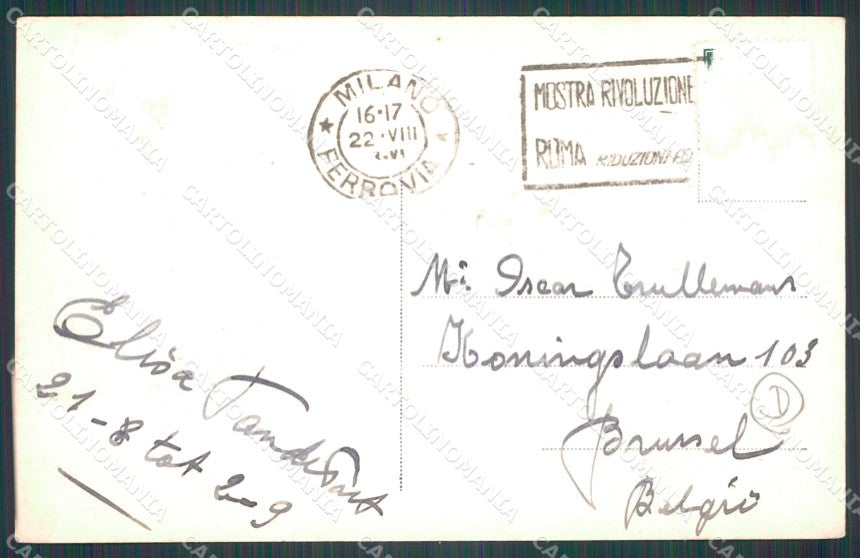 MILANO
16·17
22·VIII
FERROVIA
MOSTRA RIVOLUZIONE
ROMA RIDUZIONI FE
Elisa
21-8 tot 2-9
Mr. Oscar Trullemans
Koningslaan 103
D
Brussel
België
CARTOLINOMANIA